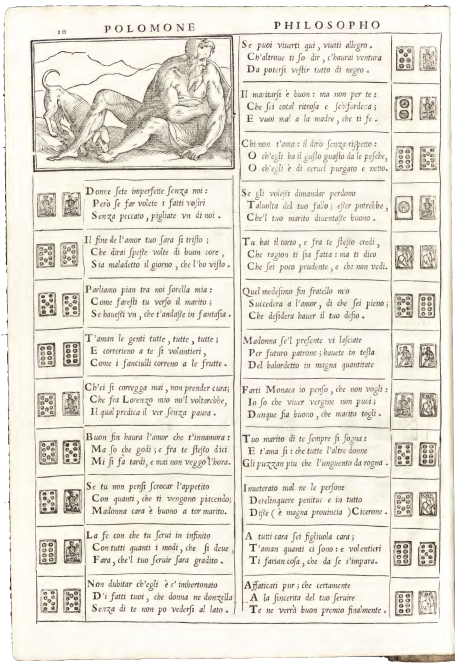 10 POLOMONE PHILOSOPHO
Donne sete imperfette senza noi:
Però se far volete i fatti vostri
Senza peccato, pigliate vn di noi.
Il fine de l'amor tuo sarà sì tristo;
Che dirai spesse volte di buon core,
Sia maladetto il giorno, che l'ho visto.
Parliamo pian tra noi sorella mia:
Come faresti tu verso il marito;
Se hauessi vn, che t'andasse in fantasia.
T'aman le genti tutte, tutte, tutte;
E correrieno a te sì volontieri,
Come i fanciulli correno a le frutte.
Ch'ei si corregga mai, non prender cura;
Che fra Lorenzo mio no'l voltarebbe,
Il qual predica il ver senza paura.
Buon fin haurà l'amor che t'innamora:
Ma so che godi; e fra te stesso dici
Mi si fa tardi, e mai non veggo l'hora.
Se tu non pensi scrocar l'appetito
Con quanti, che ti vengono piacendo;
Madonna cara è buono a tor marito.
La fe con che tu serui in infinito
Con tutti quanti i modi, che si deue,
Fara, che'l tuo seruir sarà gradito.
Non dubitar ch'egli è s' imbertonato
D'i fatti tuoi, che donna ne donzella
Senza di te non po vedersi al lato.
Se puoi viuerti qui, viuiti allegro.
Ch'altroue ti so dir, c'haurai ventura
Da potersi vestir tutto di negro.
Il maritarsi è buon: ma non per te:
Che sei cotal ritrosa e schifardena;
E vuoi mal a la madre, che ti fe.
Chi non t'ama: il dirò senza rispetto:
O ch'egli ha il gusto guasto da le pesche,
O ch'egli è di ceruel purgato e netto.
Se gli volessi dimandar perdono
Taluolta del tuo fallo; esser potrebbe,
Che'l tuo marito diuentasse buono.
Tu hai il torto, e fra te stesso credi,
Che ragion ti sia fatta: ma ti dico
Che sei poco prudente, e che non vedi.
Quel medesimo fin fratello mio
Succederà a l'amor, di che sei pieno;
Che desidera hauer il tuo desio.
Madonna se'l presente vi lasciate
Per futuro patrone; hauete in testa
Del balordetto in magna quantitate
Farti Monaca io penso, che non vogli:
Io so che viuer vergine non puoi;
Dunque fia buono, che marito togli.
Tuo marito di te sempre si sogna:
E t'ama sì: che tutte l'altre donne
Gli puzzan più che l'unguento da rogna.
Inueterato mal ne le persone
Derelinquere penitus e in tutto
Disse (è magna prouincia) Cicerone.
A tutti cara sei figliuola cara;
T'aman quanti ci sono: e volentieri
Ti farian cosa, che da se s'impara.
Affaticati pur; che certamente
A la sincerità del tuo seruire
Te ne verrà buon premio finalmente.